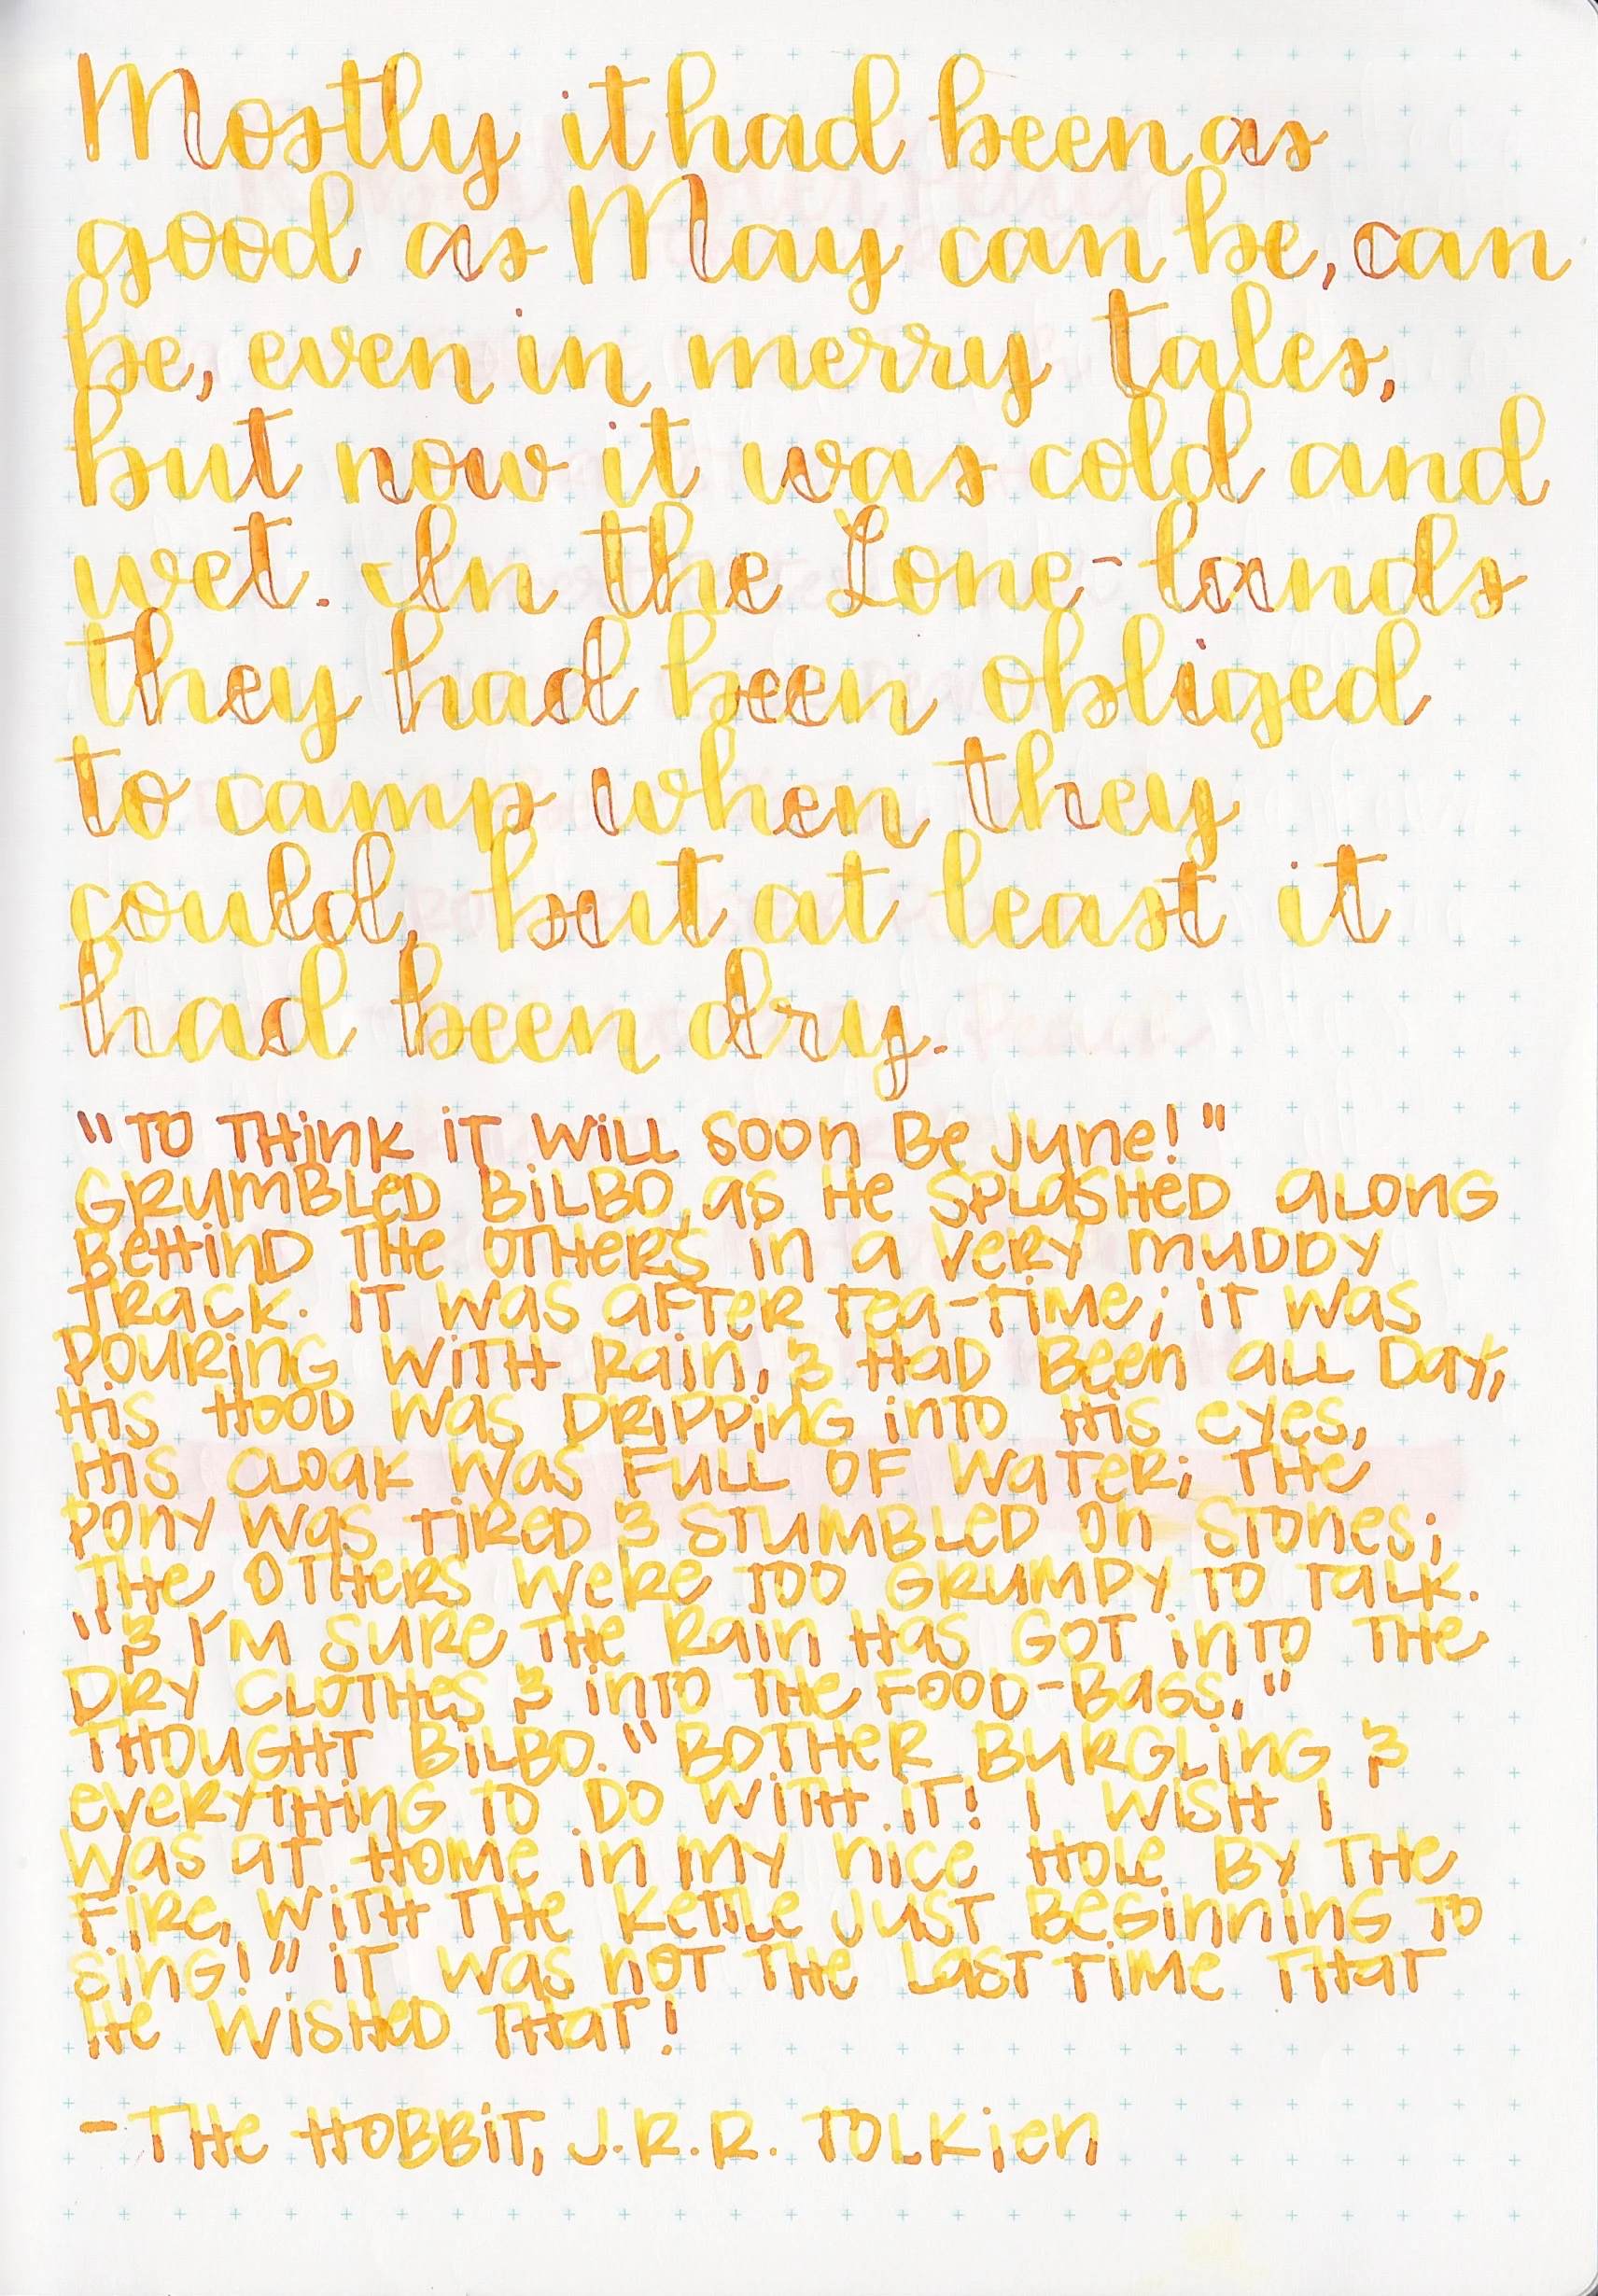 Mostly it had been as
good as May can be, can
be, even in merry tales,
but now it was cold and
wet. In the Lone-lands
they had been obliged
to camp when they
could, but at least it
had been dry.
"To think it will soon be June!"
grumbled Bilbo, as he splashed along
behind the others in a very muddy
track. It was after tea-time; it was
pouring with rain, & had been all day,
his hood was dripping into his eyes,
his cloak was full of water; the
pony was tired & stumbled on stones;
the others were too grumpy to talk.
"& I'm sure the rain has got into the
dry clothes & into the food-bags,"
thought Bilbo. "Bother burgling &
everything to do with it! I wish I
was at home in my nice hole by the
fire, with the kettle just beginning to
sing!" It was not the last time that
he wished that!
- The Hobbit, J.R.R. Tolkien